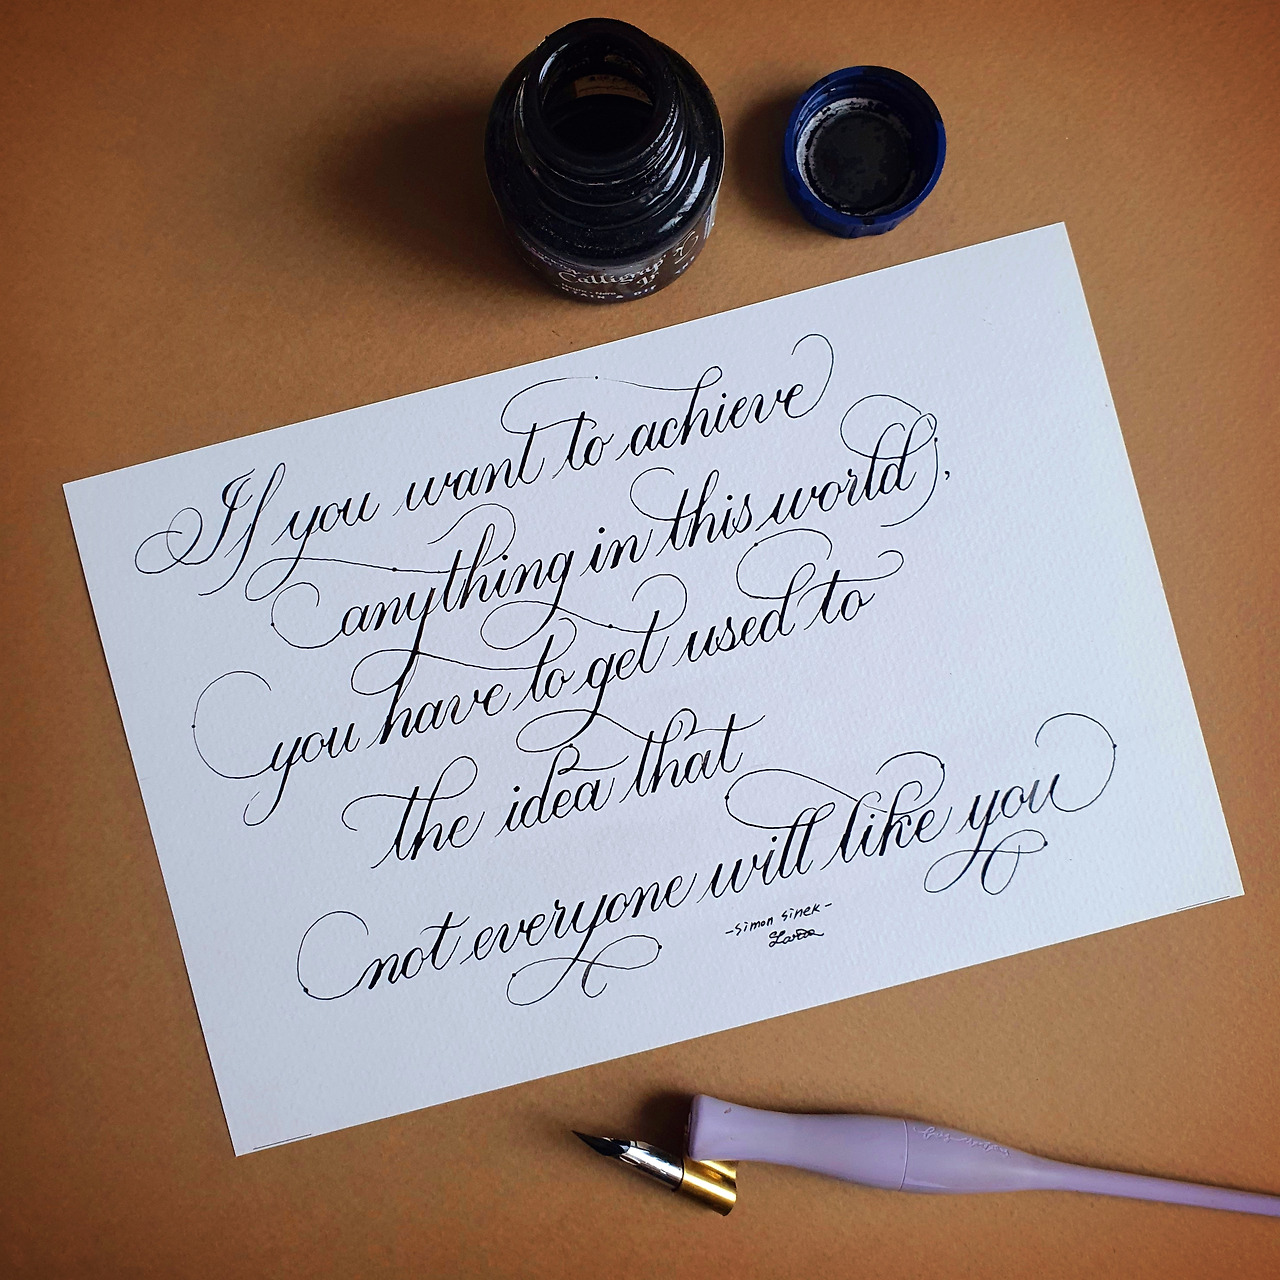 Calligraphy
If you want to achieve
anything in this world,
you have to get used to
the idea that
not everyone will like you
-simon sinek-